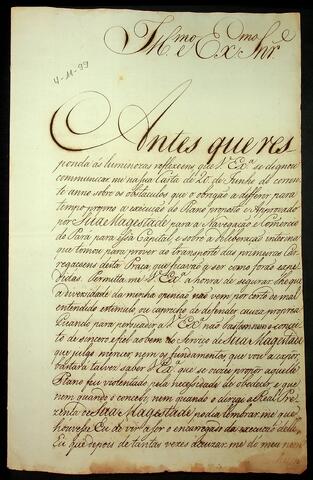 Illmo e Exmo Snr.
4-11-99
Antes que res
ponda ás luminozas reflexoens que V Exa se dignou
communicar me na sua Carta de 20 de Junho do corren
te anno sobre os obstaculos que o obrigão a differir para
tempo proprio a execução do Plano proposto e Approvado
por Sua Magestade para a Navegação e Comercio
do Pará para essa Capital, e sobre a deliberação interina
que tomou para prover ao transporte das primeiras Car
regaçoens desta Praça, que ficarão a ser como forão
bidas. Permitta me V Exa a honra de segurar lhe que
a diversidade da minha opinião não vem por certo de mal
entendido estimulo, ou capricho de defender couza propria
Quando para persuadir a V Exa não bastem o concei
to de sincero e fiel ao bem do Serviço de Sua Magestade
que julgo merecer nem os fundamentos que vou a expôr,
bastará talvez saber V Exa que se eu o propôr aquelle
Plano fui violentado pela necessidade de obedecer e que
nem quando o concebi, nem quando o dirigi á Real Pre
zença de Sua Magestade podia lembrar me que
houvesse Eu de vir a ser o encarregado da execução delle,
Eu que depois de tantas vezes acuzar me do meu